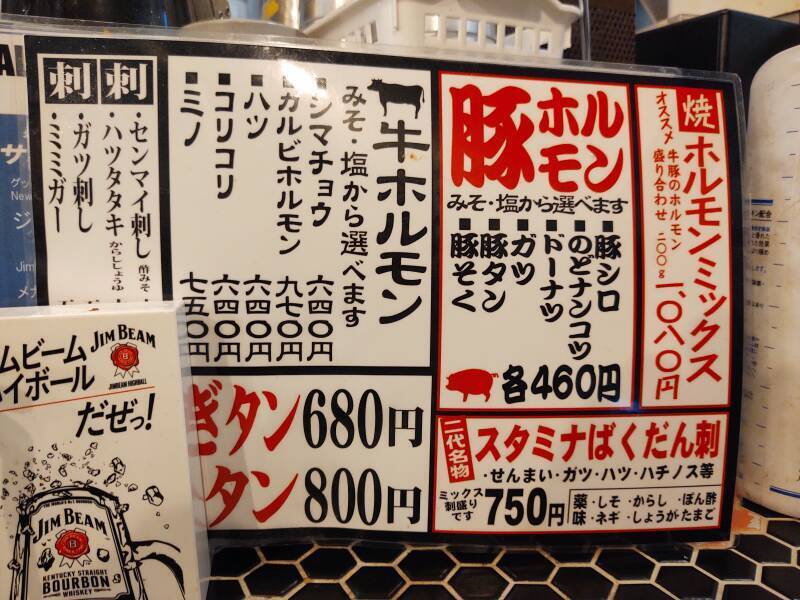 焼
ホルモンミックス
オススメ 牛豚のホルモン
盛り合わせ 二〇〇g
一、〇八〇円
豚ホルモン
みそ・塩から選べます
■豚シロ
■のどナンコツ
■ドーナツ
■ガツ
■豚タン
■豚そく
各460円
牛ホルモン
みそ・塩から選べます
■シマチョウ 六四〇円
■カルビホルモン 九七〇円
■ハツ 六四〇円
■コリコリ 六四〇円
■ミノ 七五〇円
刺
・センマイ刺し 酢みそ
・ハツタタキ からししょうゆ
刺
・ガツ刺し
・ミミガー
二代名物
スタミナばくだん刺
・せんまい・ガツ・ハツ・ハチノス等
ミックス
刺盛り
です
750円
薬味
・しそ・からし・ぽん酢
・ネギ・しょうが・たまご
ぎタン 680円
タン 800円
ムビーム
イボール
だぜっ!
JIM BEAM
JIMBEAM HIGHBALL
JIM BEAM
KENTUCKY STRAIGHT
BOURBON
WHISKEY
New
Jim